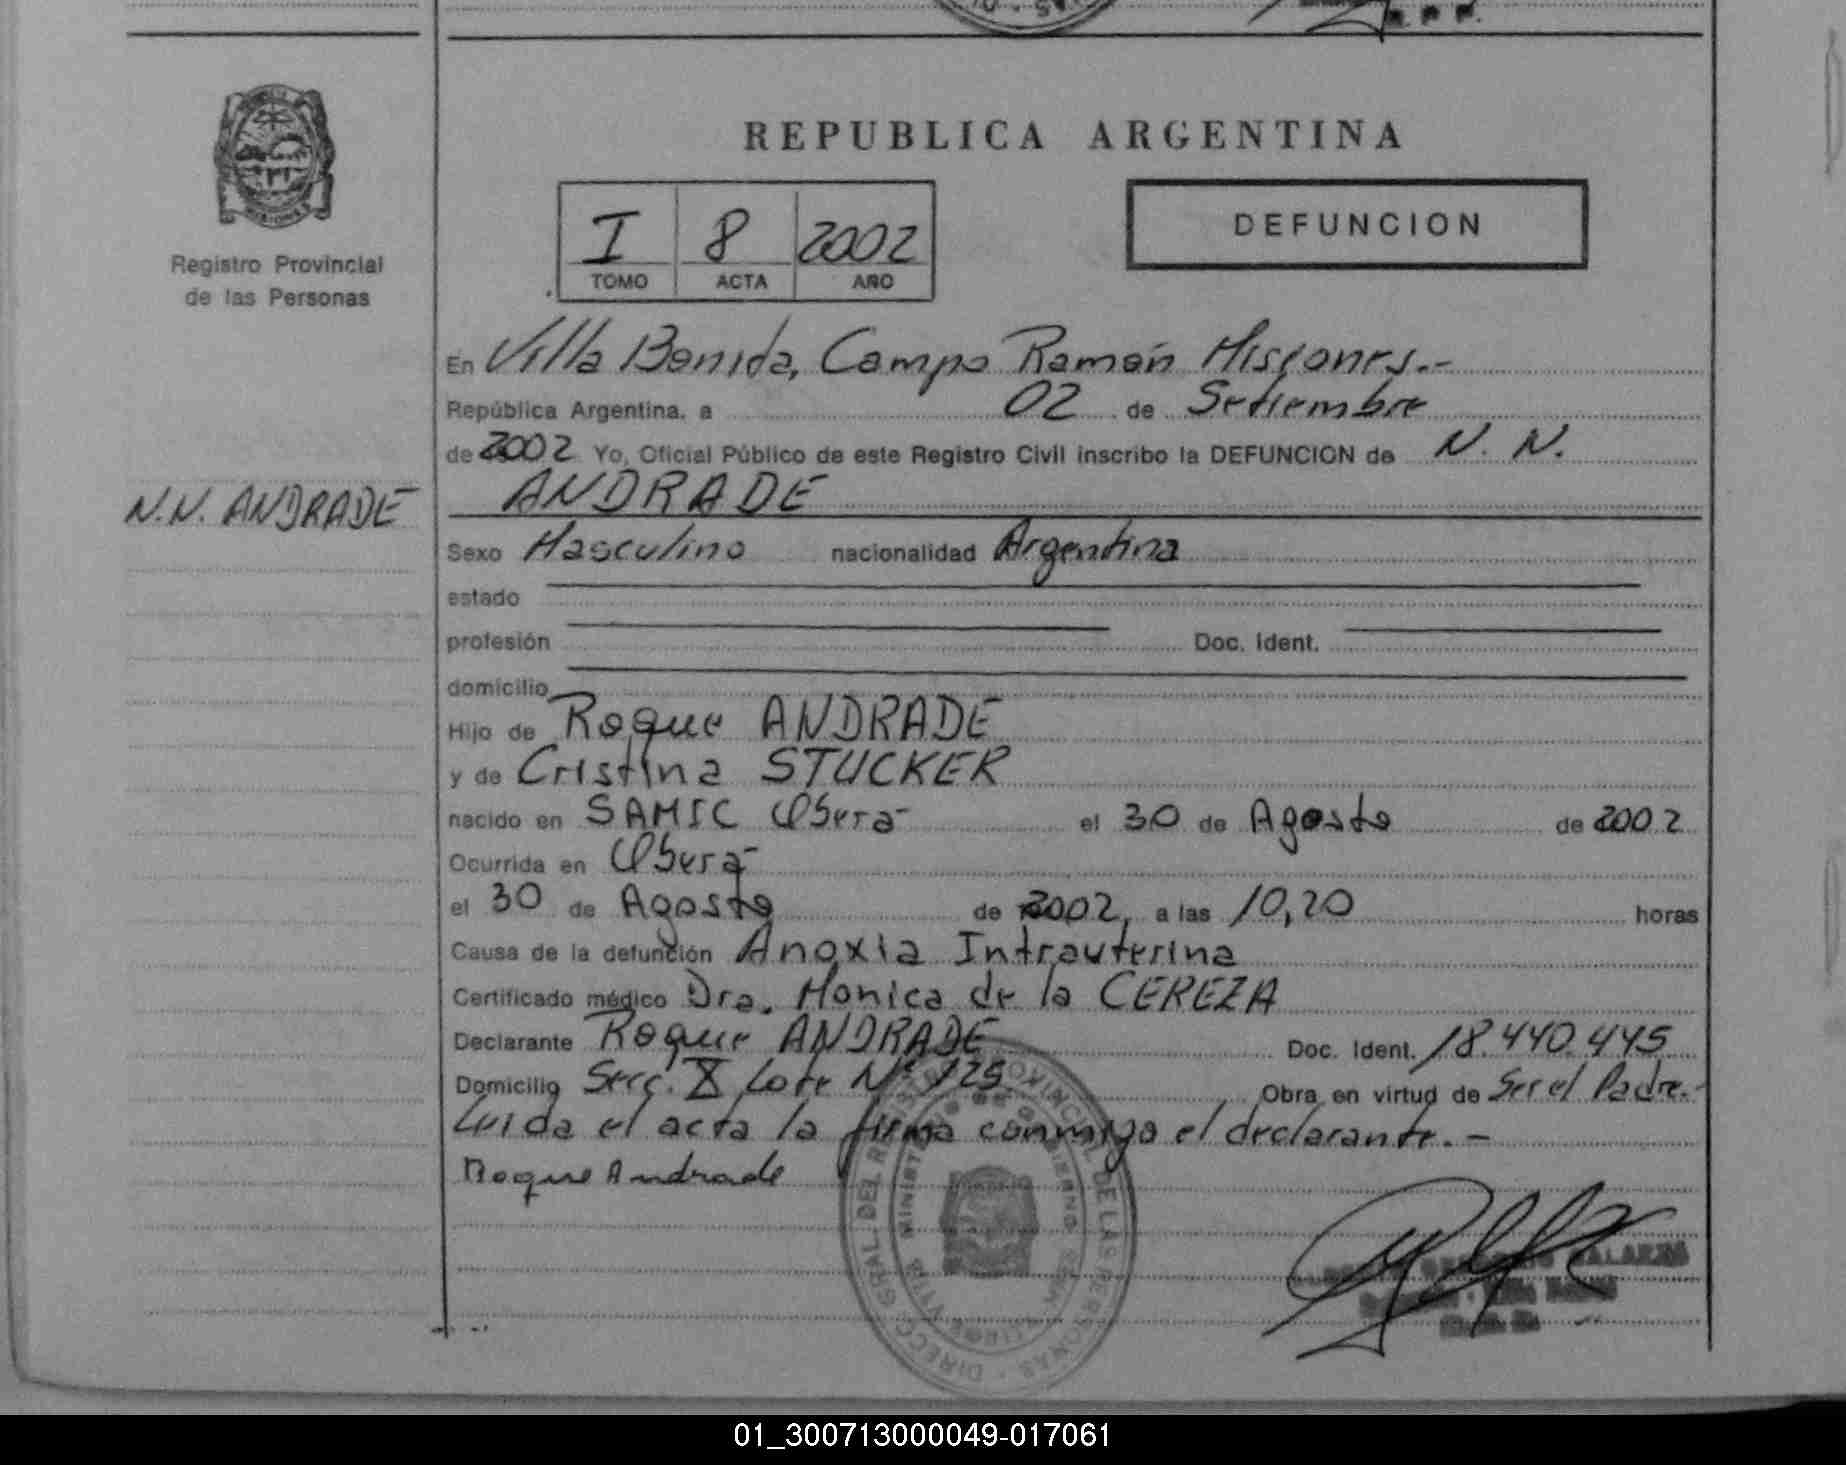 REPUBLICA ARGENTINA
Registro Provincial
de las Personas
I 8 2002
TOMO ACTA AÑO
DEFUNCION
En Villa Bonida, Campo Ramón Misiones.-
República Argentina, a 02 de Setiembre
de 2002 Yo, Oficial Público de este Registro Civil inscribo la DEFUNCION de N. N.
N.N. ANDRADE
ANDRADE
Sexo Masculino nacionalidad Argentina
estado
profesión Doc. Ident.
domicilio
Hijo de Roque ANDRADE
y de Cristina STUCKER
nacido en SAMIC Oberá el 30 de Agosto de 2002
Ocurrida en Oberá
el 30 de Agosto de 2002, a las 10,20 horas
Causa de la defunción Anoxia Intrauterina
Certificado médico Dra. Monica de la CEREZA
Declarante Roque ANDRADE Doc. Ident. 18.440.445
Domicilio Secc. X Lote Nº 125 Obra en virtud de Ser el Padre.-
Leida el acta la firma conmigo el declarante.-
Roque Andrade
01_300713000049-017061